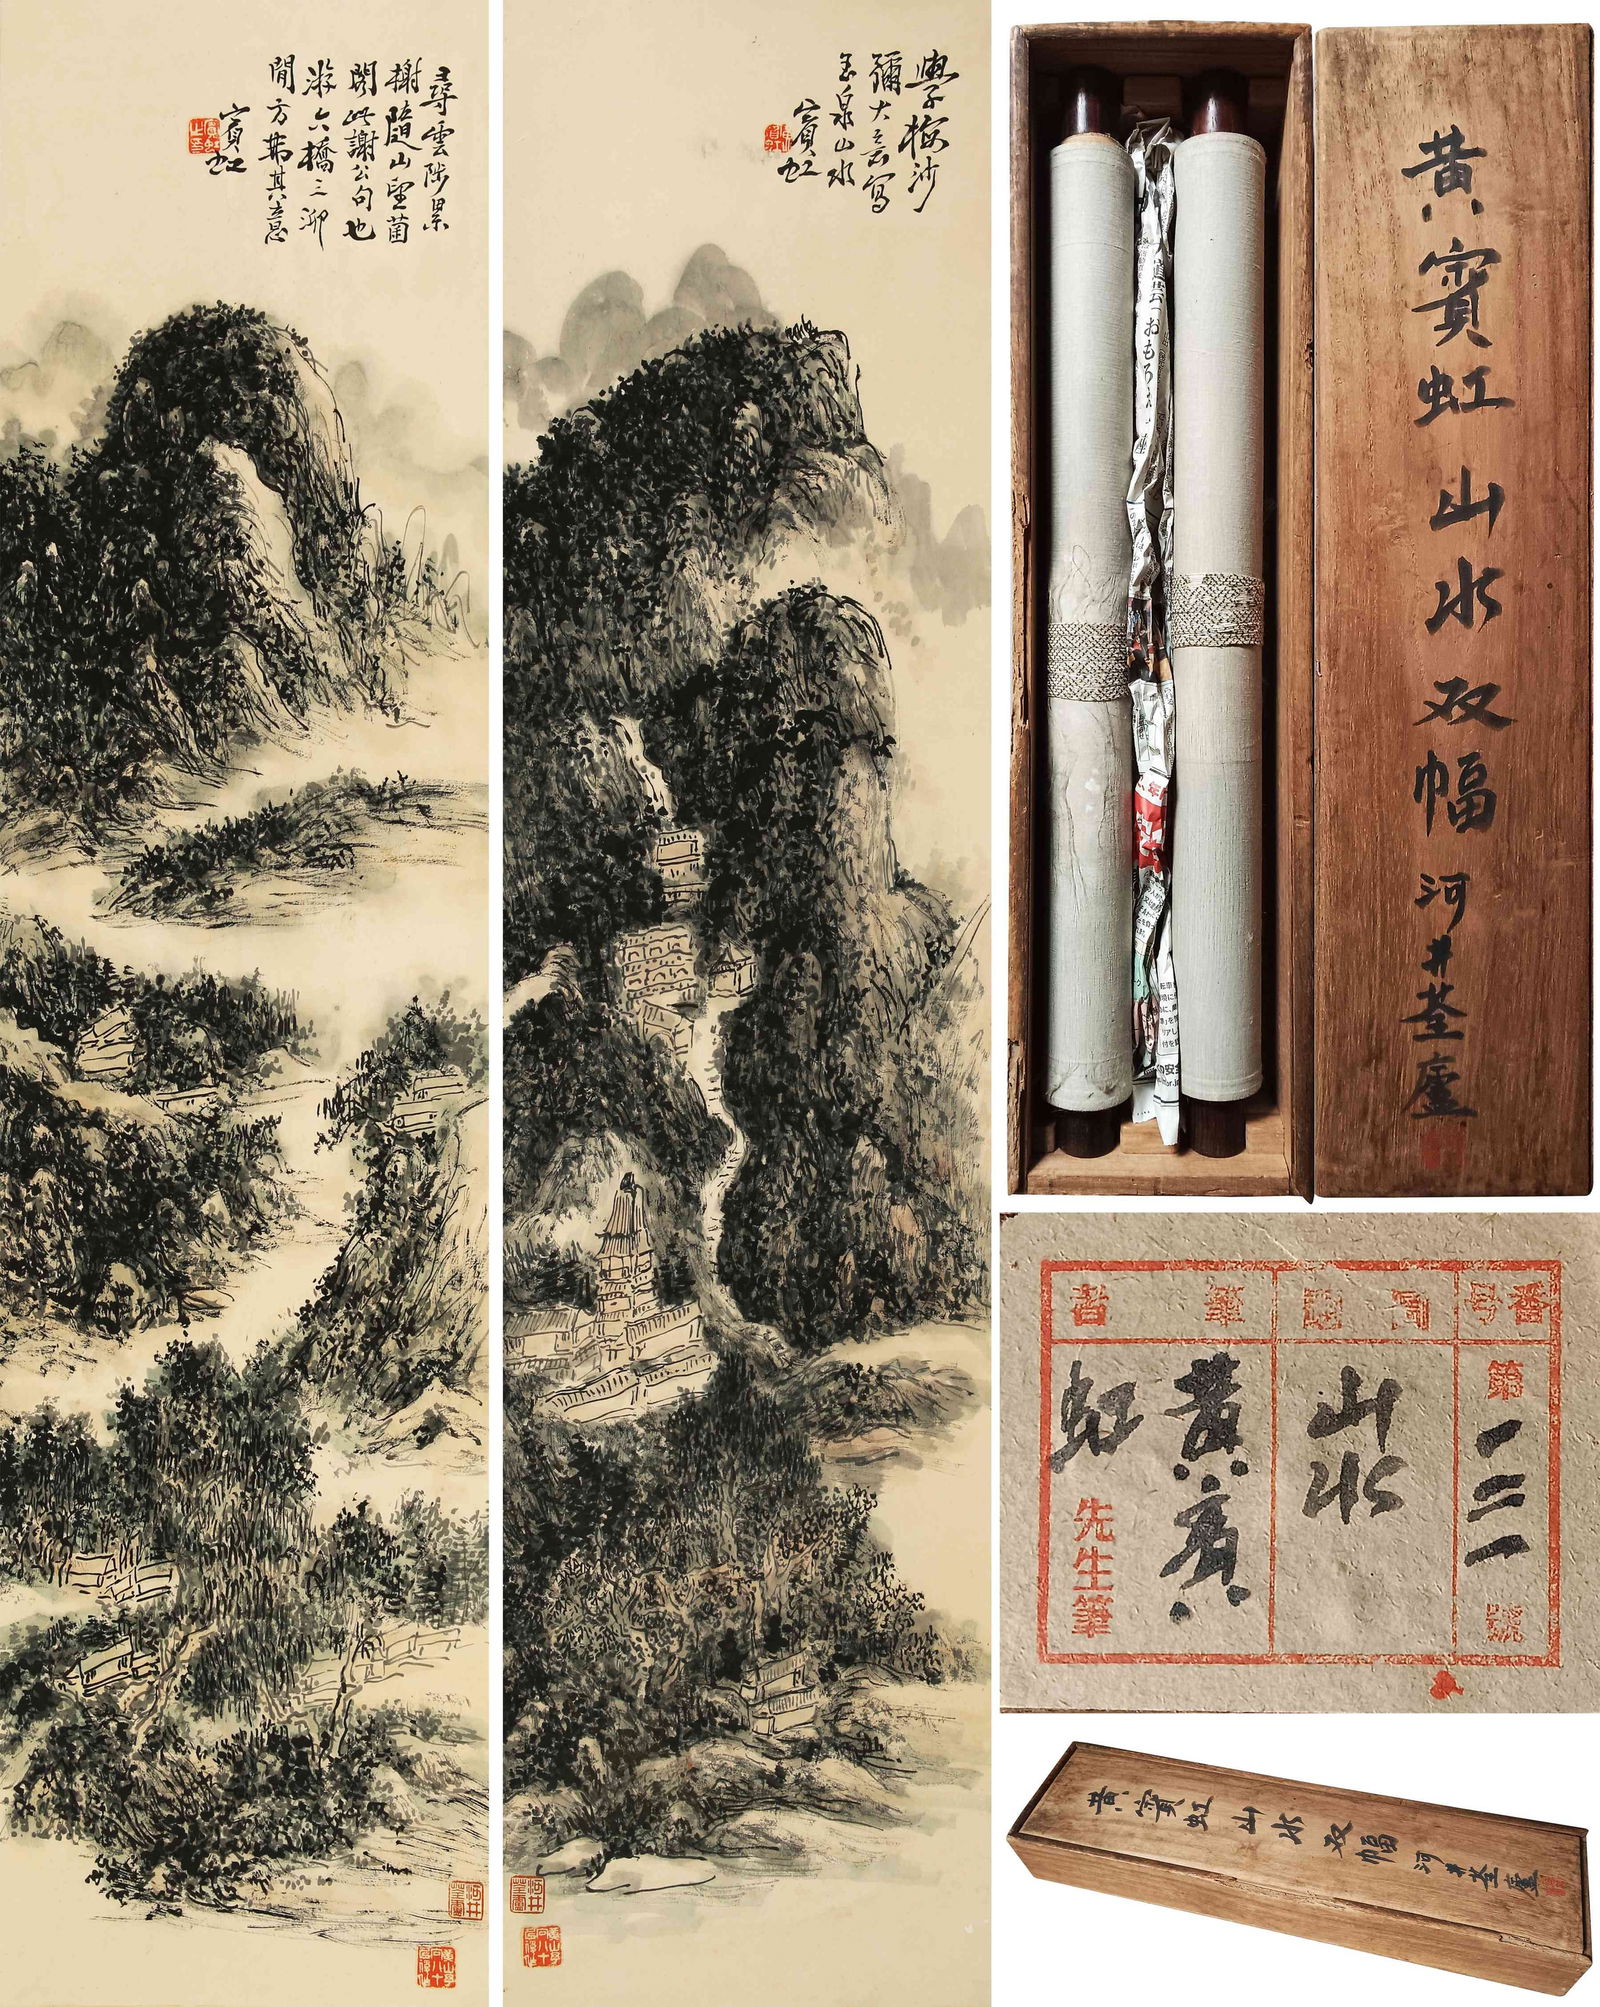 尋雲陟累
榭隨山望菌
閣此謝公句也
游六橋三泖
間方茀其意
賓虹
學梅沙
彌大意寫
玉泉山水
賓虹
黃賓虹山水双幅 河井荃廬
番号
第一二一號
畫題
山水
筆者
黃賓虹先生筆
河井荃廬
河井荃廬
黃賓虹山水双幅 河井荃廬